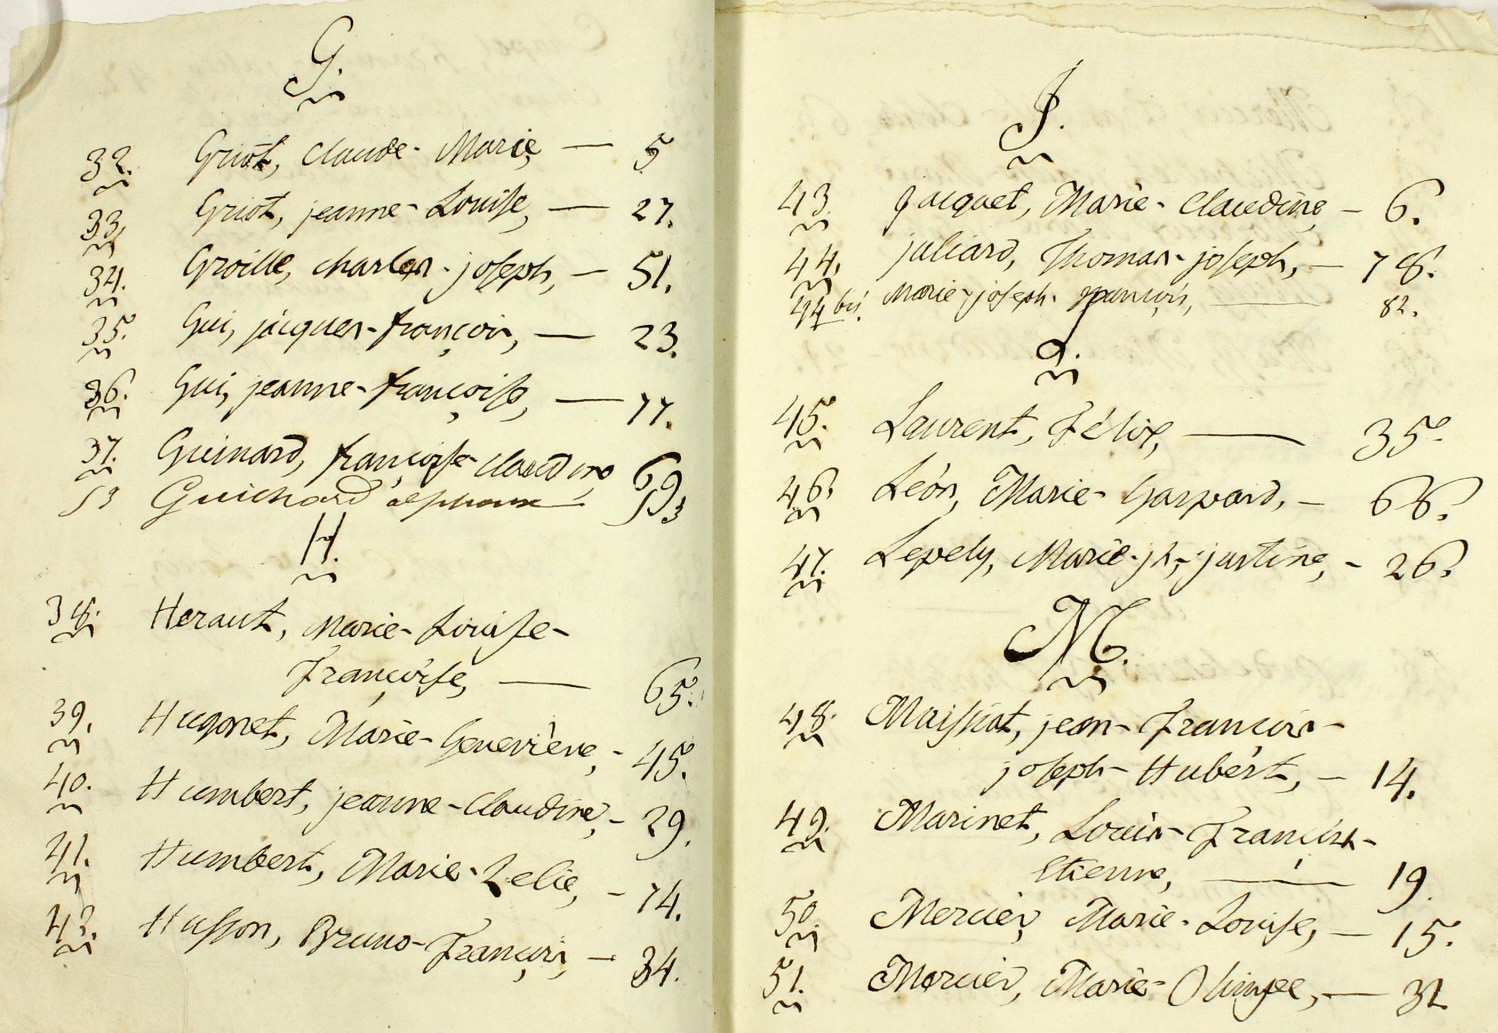 G.
32. Griot, Claude-Marie, — 5
33. Griot, jeanne-Louise, — 27.
34. Groille, charles-joseph, — 51.
35. Gui, jacques-françois, — 23.
36. Gui, jeanne-françoise, — 77.
37. Guinard, françoise-claudine 69
53 Guichard alphonse 53
H.
38. Heraut, Marie-Louise-
Françoise, — 65.
39. Hugonet, Marie-Geneviève, - 45.
40. Humbert, jeanne-Claudine, - 29.
41. Humbert, Marie-Zelie, - 74.
42. Husson, Bruno-François, — 34.
J.
43. jacquet, Marie-Claudine, - 6.
44. juliard, Thomas-joseph, — 78.
44 bis. Marie-joseph-françois, — 82.
45. Laurent, Félix, — 35.
46. Léon, Marie-Gaspard, — 66.
47. Lepely, Marie-jh-justine, - 26.
M.
48. Maissiat, jean-François-
joseph-Hubert, — 14.
49. Marinet, Louis-François-
Etienne, — 19.
50. Mercier, Marie-Louise, — 15.
51. Mercier, Marie-Olimpe, — 32